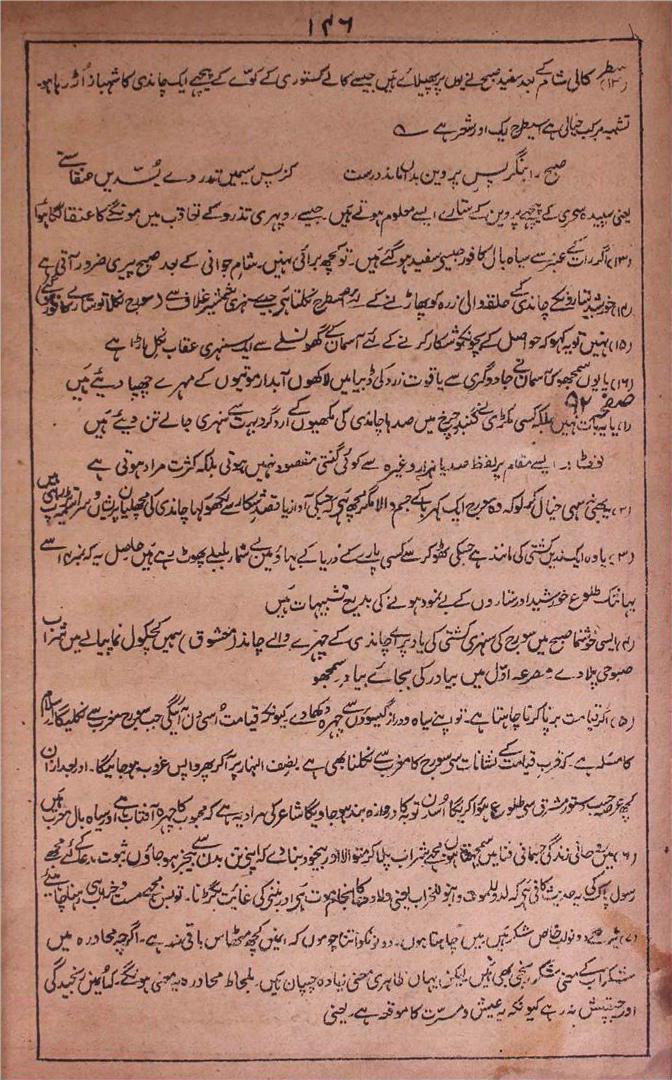 ۱۴۶
سطر (۱۲) کالی شام کے بعد سفید صبح نے یوں پر پھیلائے ہیں جیسے کالے کستوری کے کوّے کے پیچھے ایک چاندی کا شہباز اُڑ رہا ہو۔
تشبیہ مرکب خیالی ہے اسیطرح ایک اور شعر ہے
صبح را بنگر پس پروین بداں ماند درست کز پس سیمیں تدرو دے بُسّدیں عنقاستے
یعنی سپیدہ سحری کے پیچھے پروین کے ستارے ایسے معلوم ہوتے ہیں۔ جیسے روپہری تذرو کے تعاقب میں مونگے کا عنقا لگا ہوا
(۱۳) اگر رات کے عنبر سے سیاہ بال کافور جیسی سفید ہو گئے ہیں۔ تو کچھ برائی نہیں۔ شام جوانی کے بعد صبح پیری ضرور آتی ہے
(۱۴) خورشید تباروں کے چاندی کے حلقہ والی زرہ کو پھاڑنے کے لئے اسطرح نکلتا ہے جیسے سنہری شمشیر غلاف سے (سورج نکلا تو ستارے کافور ہو گئے)
(۱۵) نہیں تو یہ کہو کہ حواصل کے بچونکو شکار کرنے کے لئے آسمان کے گھونسلے سے ایک سنہری عقاب نکل پڑا ہے
(۱۶) یا یوں سمجھو کہ آسمان نے جادوگری سے یاقوت زرد کی ڈبیا میں لاکھوں آبدار موتیوں کے مہرے چھپا دیئے ہیں
صفحہ ۹۲
(۱) یا یہ بات نہیں بلکہ کسی مکڑی نے گنبد چرخ میں صدہا چاندی کی مکھیوں کے ارد گرد بہت سے سنہری جالے تن دیئے ہیں
نوٹ:۔ ایسے مقام پر لفظ صد یا ہزار وغیرہ سے کوئی گنتی مقصود نہیں ہوتی بلکہ کثرت مراد ہوتی ہے
(۲) یا یہی خیال کر لو کہ وہ سورج ایک کہربائے جسم والا مگرمچھ ہے کہ جسکی آواز یا قصد شکار سے لکھوکہا چاندی کی مچھلیاں
(۳) یا وہ ایک زریں کشتی کی مانند ہے جسکی ٹھوکر سے کسی پارے کے دریا کے بہاؤ میں بے شمار بلبلے پھوٹ رہے ہیں حاصل یہ کہ نمبر ۱۴ سے
یہانتک طلوع خورشید اور ستاروں کے بے نمود ہونے کی بدیع تشبیہات ہیں
(۴) ایسی خوشنما صبح میں سورج کی سنہری کشتی کی یاد پر اے چاندی کے چہرے والے چاند (معشوق) سیمیں کچکول نما پیالے میں شراب
صبوحی پلا دے مصرعہ اوّل میں بیادر کی بجائے بیاد سمجھو
(۵) اگر قیامت برپا کرنا چاہتا ہے۔ تو اپنے سیاہ و دراز گیسوؤں سے چہرہ دکھا دے کیونکہ قیامت اُسی دن آئیگی جب سورج مغرب سے نکلیگا اسلام
کا مسئلہ ہے۔ کہ قرب قیامت کے نشانات سے سورج کا مغرب سے نکلنا بھی ہے نصف النہار پر آکر پھر واپس غروب ہو جائیگا۔ اور بعد ازاں
کچھ عرصہ حسب دستور مشرق سے طلوع ہوا کریگا اُسدن توبہ کا دروازہ بند ہو جاویگا شاعر کی مراد یہ ہے کہ محبوب کا چہرہ آفتاب ہے اور سیاہ بال مغرب ہیں
(۶) میں حیاتی زندگی جسمانی فنا میں سمجھتا ہوں مجھے شراب پلا کر متوالا اور بیخود بنا دے کہ اپنی تن بدن سے بیخبر ہو جاؤں ثبوت مدعا کے لئے مجھے
رسول پاک کی یہ حدیث کافی ہے کہ لدو للموت وابنو للخراب یعنی ولادت کا انجام موت ہے اور بننے کی غایت بگڑنا۔ تو پس مجھے مست و خراب ہی رہنا چاہیئے
(۷) تیرے دو نو لب خاص شکر ہیں میں چاہتا ہوں۔ دونوں کو اتنا چوموں کہ انمیں کچھ مٹھاس باقی نہ رہے۔ اگرچہ محاورہ میں
شکراب کے معنی شکر رنجی بھی ہیں لیکن یہاں ظاہری معنی زیادہ چسپاں ہیں۔ بلحاظ محاورہ یہ معنی ہونگے۔ کہ انمیں رنجیدگی
اور چپقلش نہ رہے کیونکہ یہ عیش و مسرّت کا موقعہ ہے۔ یعنی